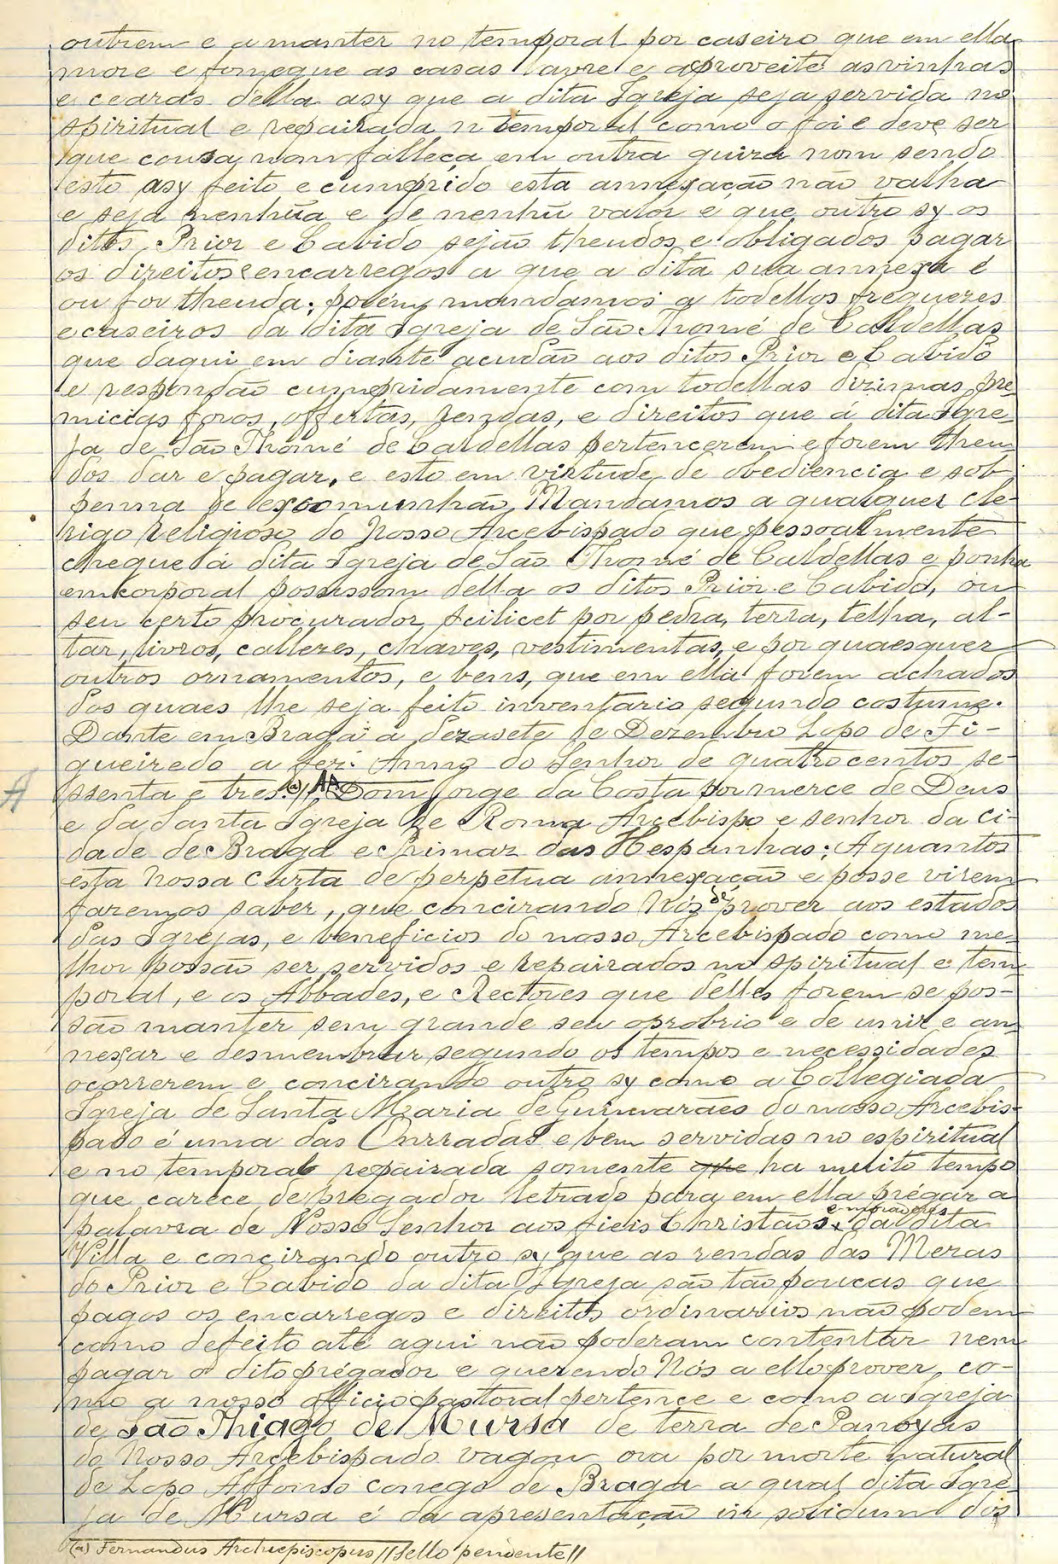 outrem e a manter no temporal por caseiro que em ella
more e fomegue as casas lavre e aproveite as vinhas
e cearas della asy que a dita Igreja seja servida no
spiritual e repairada n temporal como o foi e deve ser
que cousa nom falleça em outra guiza nom sendo
esto asy feito e cumprido esta annexação não valha
e seja nenhũa e de nenhũ valor e que outro sy os
ditos Prior e Cabido sejão theudos e obligados pagar
os direitos e encarregos a que a dita sua annexa é
ou for theuda; porem mandamos a todellos freguezes
e caseiros da dita Igreja de São Thomé de Caldellas
que daqui em diante acudão aos ditos Prior e Cabido
e respondão cumpridamente com todellas dizimas, pre-
micias foros, offertas, rendas, e direitos que á dita Igre-
ja de São Thomé de Caldellas pertencerem e forem theu-
dos dar e pagar, e esto em virtude de obediencia e sob
penna de excomunhão. Mandamos a qualquer cle-
rigo religioso do Nosso Arcebispado que pessoalmente
chegue á dita Igreja de São Thomé de Caldellas e ponha
em corporal posissom della os ditos Prior e Cabido, ou
seu certo procurador, scilicet por pedra, terra, telha, al-
tar, livros, callezes, chaves, vestimentas, e por quaesquer
outros ornamentos, e bens, que em ella forem achados
Dos quaes lhe seja feito inventario segundo costume.
Dante em Braga a dezasete de Dezembro Lopo de Fi-
gueiredo a fez. Anno do Senhor de quatrocentos se-
ssenta e tres. (a) // Dom Jorge da Costa por merce de Deus
A
e da Santa Igreja de Roma Arcebispo e senhor da ci-
dade de Braga e Primaz das Hespanhas; A quantos
esta nossa carta de perpetua annexação e posse virem
faremos saber, que concirando Nós de prover aos estados
das Igrejas, e beneficios do nosso Arcebispado como me-
lhor possão ser servidos e repairados no spiritual e tem-
poral, e os Abbades, e Rectores que delles forem se pos-
são manter sem grande seu oprobrio e de unir e an-
nexar e desmembrar segundo os tempos e necessidades
ocorrerem e concirando outro sy como a Collegiada
Igreja de Santa Maria de Guimarães do nosso Arcebis-
pado é uma das Onrradas e bem servidas no espiritual
e no temporal repairada somente que ha muito tempo
que carece de pregador letrado para em ella prégar a
palavra de Nosso Senhor aos fieis Christãos e moradores da dita
Villa e concirando outro sy que as rendas das Mezas
do Prior e Cabido da dita Igreja são tão poucas que
pagos os encarregos e direitos ordinarios não podem
como defeito até aqui não poderam contentar nem
pagar o dito prégador e querendo Nós a ello prover, co-
mo a nosso officio pastoral pertence e como a Igreja
de São Thiago de Mursa de terra de Panoyas
do Nosso Arcebispado vagou ora por morte natural
de Lopo Affonso conego de Braga a qual dita Igre-
ja de Mursa é da apresentação in solidum dos
(a) Fernandus Archiepiscopus // Sello pendente //